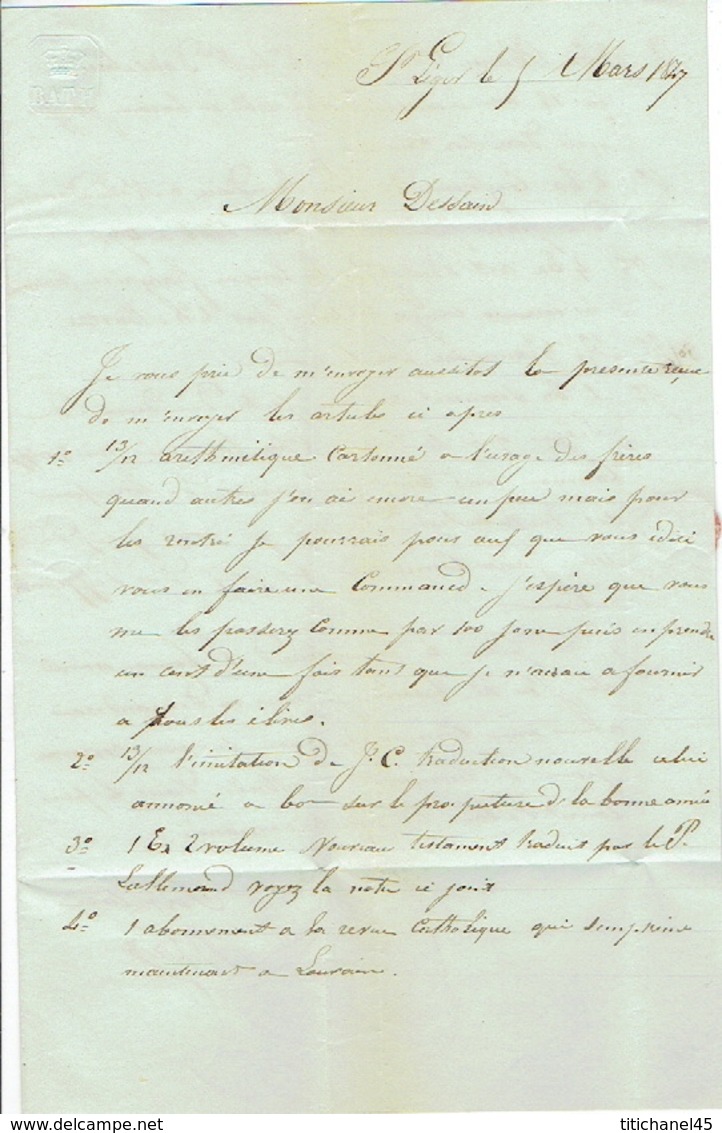 BATH
St Léger le 5 Mars 1847
Monsieur Dessain
Je vous prie de m'envoyer aussitot la presente reçue
de m'envoyer les articles ci apres
1º 13/12 arethmétique Cartonné a l'usage des frères
quand autres j'en ai encore un peu mais pour
les rentré je pourrais pour auf que vous idici
vous en faire une Command. j'espère que vous
me les passerez comme par 100 je ne puis en prendre
un cent d'une fois tant que je n'aurau a fournir
a tous les élèves.
2º 13/12 l'imitation de J. C. traduction nouvelle celui
annoncé a sur le de la bonne année
3º 1 Ex 2 volume Nouveau testament traduit par le P.
Lallemand voyez la note ci joint
4º 1 abonnement a la revue Catholique qui s'imprime
maintenant a Louvain.
titichanel45